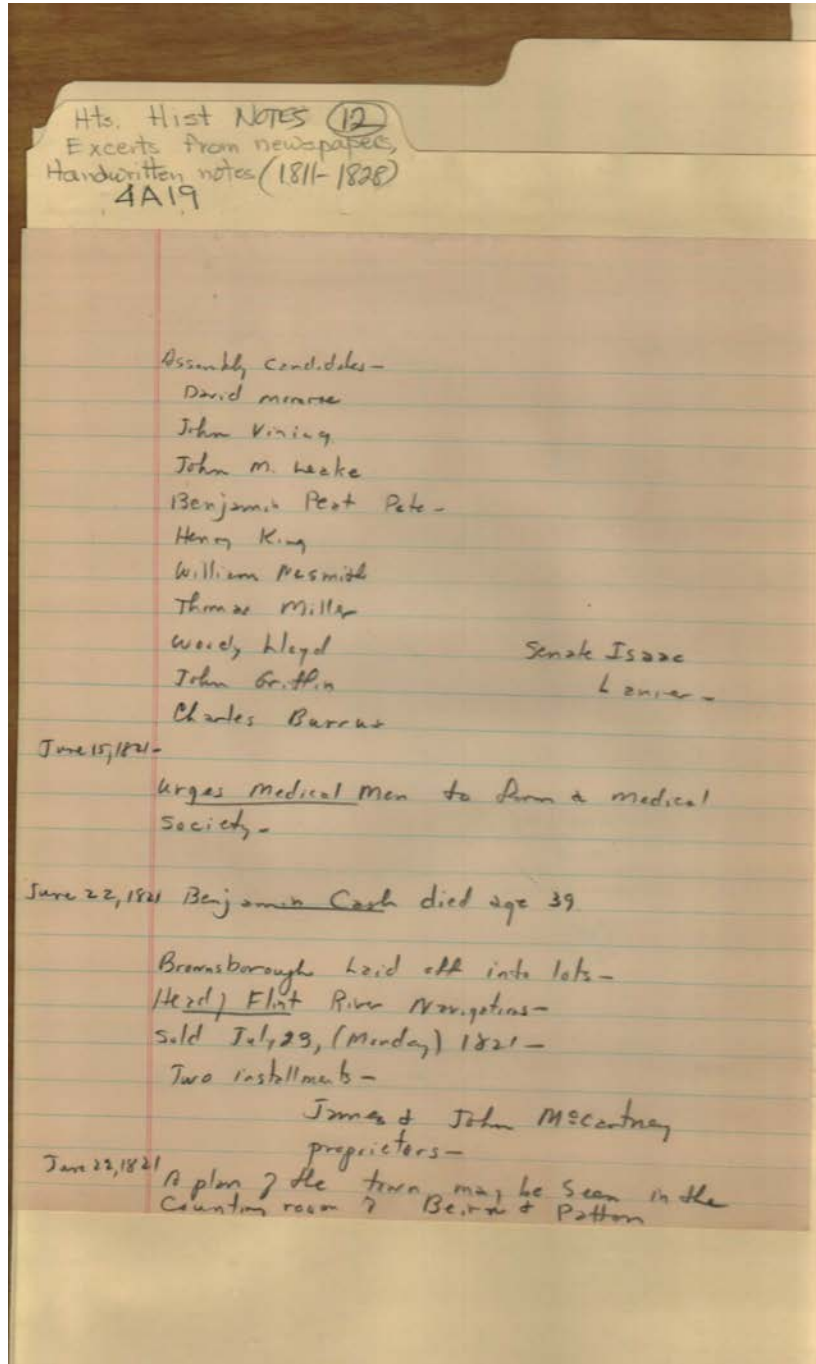 Hts. Hist NOTES (12)
Excerts from newspapers,
Handwritten notes (1811-1828)
4A19
Assembly Candidates-
David
John Vining
John M. Leake
Benjamin Peat Pete-
Henry King
William Nesmith
Thomas Miller
Woody Lloyd
Senate Isaac
John Griffin
Lanier-
Charles Burrus
June 15, 1821-
Urges Medical Men to form a Medical
Society-
June 22, 1821 Benjamin Cash died age 39
Brownsborough Laid off into lots-
Head of Flint River Navigations-
Sold July 23, (Monday) 1821-
Two installments-
James & John McCartney
proprietors-
June 22, 1821
A plan of the town may be Seen in the
Counting room of Beirne & Patton